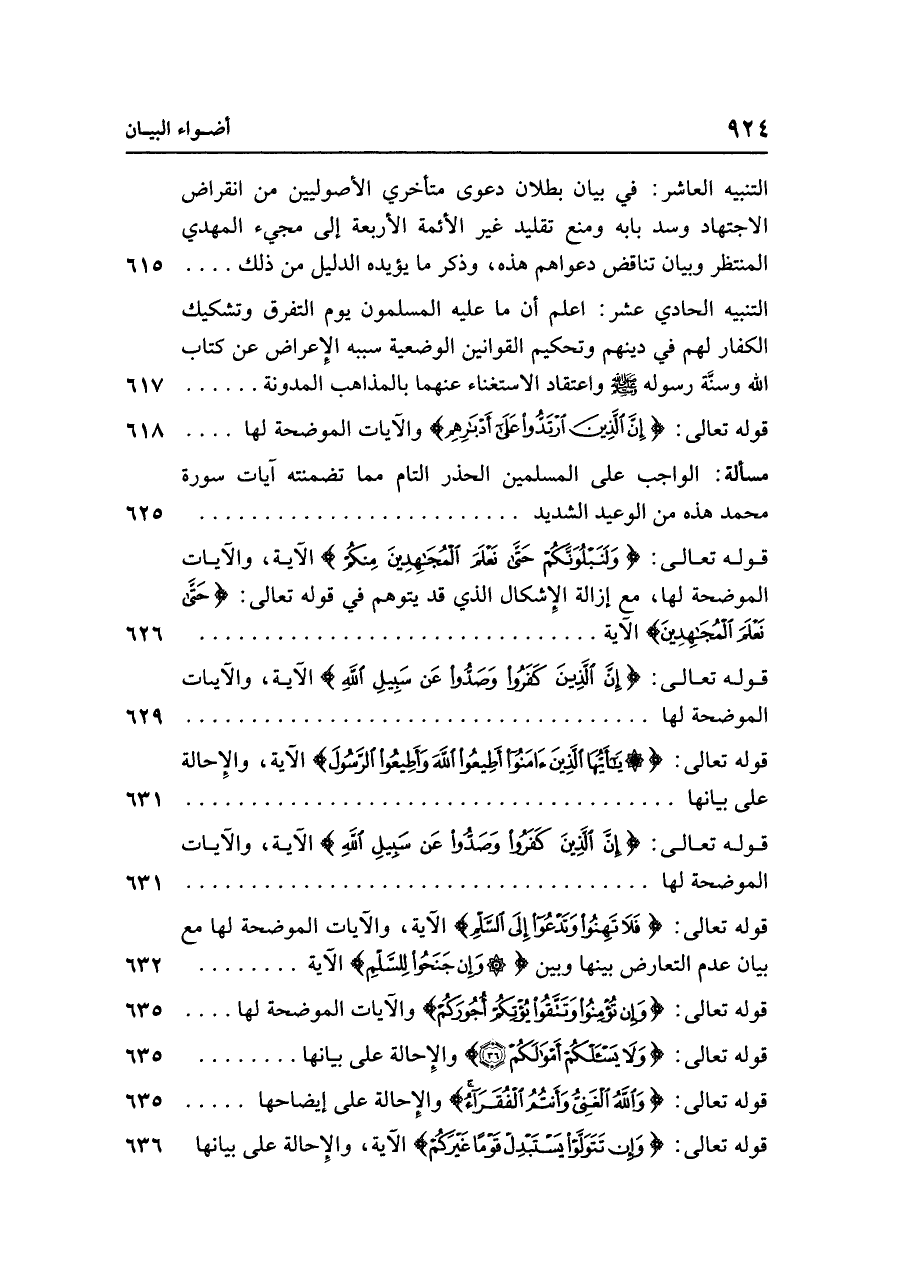 ٩٢٤ أضـواء البيـان
التنبيه العاشر: في بيان بطلان دعوى متأخري الأصوليين من انقراض
الاجتهاد وسد بابه ومنع تقليد غير الأئمة الأربعة إلى مجيء المهدي
المنتظر وبيان تناقض دعواهم هذه، وذكر ما يؤيده الدليل من ذلك .... ٦١٥
التنبيه الحادي عشر: اعلم أن ما عليه المسلمون يوم التفرق وتشكيك
الكفار لهم في دينهم وتحكيم القوانين الوضعية سببه الإعراض عن كتاب
الله وسنَّة رسوله ﷺ واعتقاد الاستغناء عنهما بالمذاهب المدونة ...... ٦١٧
قوله تعالى: ﴿إِنَّ ٱلَّذِينَ ٱرْتَدُّوا۟ عَلَىٰٓ أَدْبَـٰرِهِم﴾ والآيات الموضحة لها .... ٦١٨
مسألة: الواجب على المسلمين الحذر التام مما تضمنته آيات سورة
محمد هذه من الوعيد الشديد ......................... ٦٢٥
قـولـه تعـالـى: ﴿وَلَنَبْلُوَنَّكُمْ حَتَّىٰ نَعْلَمَ ٱلْمُجَـٰهِدِينَ مِنكُمْ﴾ الآيـة، والآيـات
الموضحة لها، مع إزالة الإشكال الذي قد يتوهم في قوله تعالى: ﴿حَتَّىٰ
نَعْلَمَ ٱلْمُجَـٰهِدِينَ﴾ الآية ............................... ٦٢٦
قـولـه تعـالـى: ﴿إِنَّ ٱلَّذِينَ كَفَرُوا۟ وَصَدُّوا۟ عَن سَبِيلِ ٱللَّهِ﴾ الآيـة، والآيـات
الموضحة لها .................................... ٦٢٩
قوله تعالى: ﴿۞ يَـٰٓأَيُّهَا ٱلَّذِينَ ءَامَنُوٓا۟ أَطِيعُوا۟ ٱللَّهَ وَأَطِيعُوا۟ ٱلرَّسُولَ﴾ الآية، والإحالة
على بيانها ...................................... ٦٣١
قـولـه تعـالـى: ﴿إِنَّ ٱلَّذِينَ كَفَرُوا۟ وَصَدُّوا۟ عَن سَبِيلِ ٱللَّهِ﴾ الآيـة، والآيـات
الموضحة لها .................................... ٦٣١
قوله تعالى: ﴿فَلَا تَهِنُوا۟ وَتَدْعُوٓا۟ إِلَى ٱلسَّلْمِ﴾ الآية، والآيات الموضحة لها مع
بيان عدم التعارض بينها وبين ﴿۞ وَإِن جَنَحُوا۟ لِلسَّلْمِ﴾ الآية ........ ٦٣٢
قوله تعالى: ﴿وَإِن تُؤْمِنُوا۟ وَتَتَّقُوا۟ يُؤْتِكُمْ أُجُورَكُمْ﴾ والآيات الموضحة لها .... ٦٣٥
قوله تعالى: ﴿وَلَا يَسْـَٔلْكُمْ أَمْوَٰلَكُمْ ۝٣٦﴾ والإحالة على بيانها ........ ٦٣٥
قوله تعالى: ﴿وَٱللَّهُ ٱلْغَنِىُّ وَأَنتُمُ ٱلْفُقَرَآءُ ۚ﴾ والإحالة على إيضاحها ..... ٦٣٥
قوله تعالى: ﴿وَإِن تَتَوَلَّوْا۟ يَسْتَبْدِلْ قَوْمًا غَيْرَكُمْ﴾ الآية، والإحالة على بيانها ٦٣٦